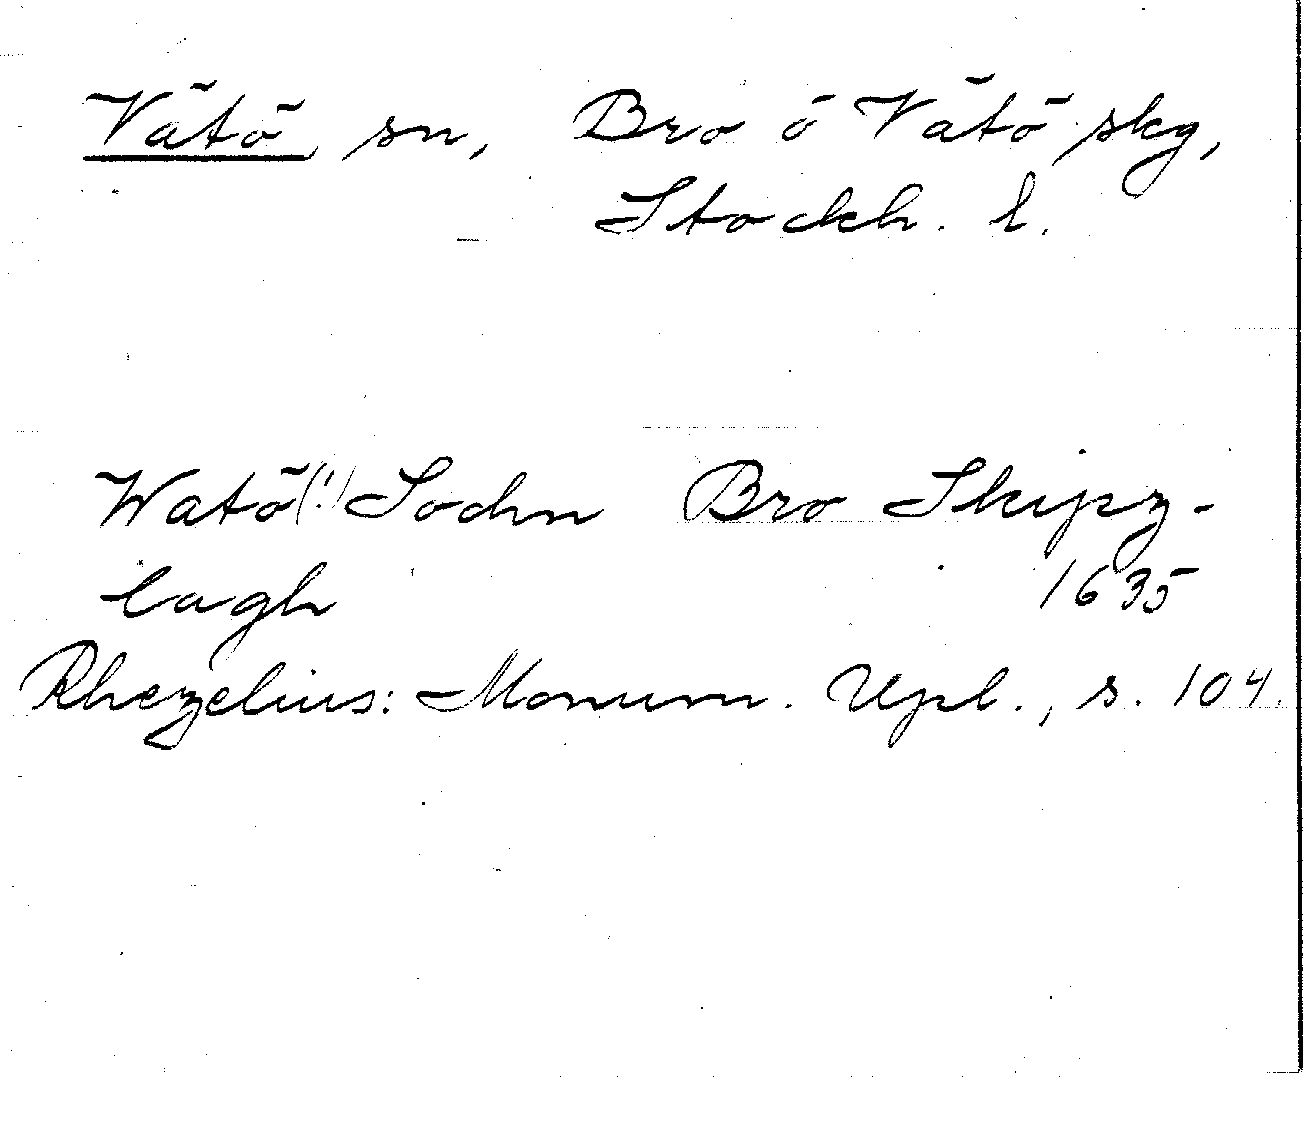 Vätö, sn, Bro o Vätö skg,
Stockh. l.
Watö(!) Sochn Bro Skipz-
lagh 1635
Rhezelius: Monum. Upl., s. 104.